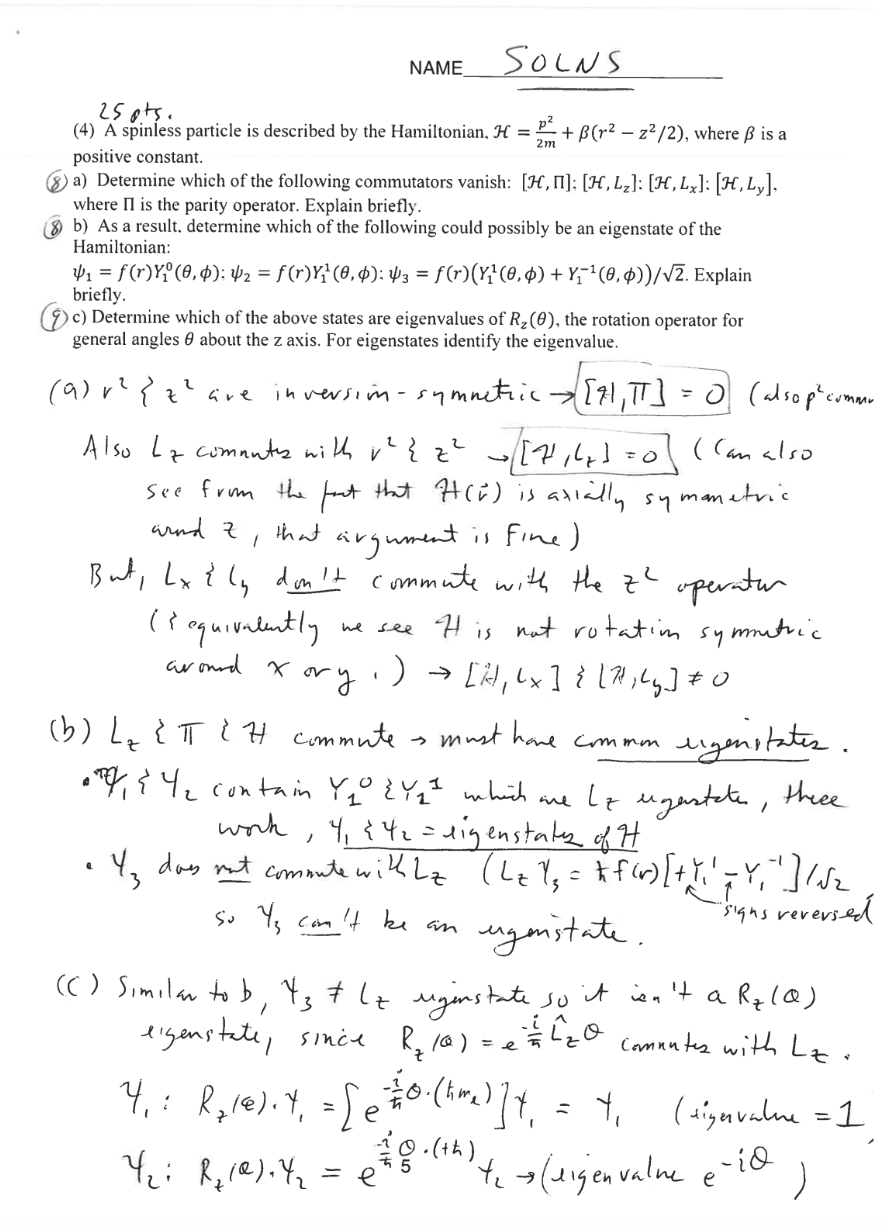 NAME SOLNS
25 pts.
(4) A spinless particle is described by the Hamiltonian, ℋ = p²/2m + β(r² − z²/2), where β is a
positive constant.
(8) a) Determine which of the following commutators vanish: [ℋ, Π]; [ℋ, L_z]; [ℋ, L_x]; [ℋ, L_y],
where Π is the parity operator. Explain briefly.
(8) b) As a result, determine which of the following could possibly be an eigenstate of the
Hamiltonian:
ψ₁ = f(r)Y₁⁰(θ, ϕ); ψ₂ = f(r)Y₁¹(θ, ϕ); ψ₃ = f(r)(Y₁¹(θ, ϕ) + Y₁⁻¹(θ, ϕ))/√2. Explain
briefly.
(9) c) Determine which of the above states are eigenvalues of R_z(θ), the rotation operator for
general angles θ about the z axis. For eigenstates identify the eigenvalue.
(a) r² & z² are inversion-symmetric → [ℋ, Π] = 0 (also p² commu
Also L_z commutes with r² & z² → [ℋ, L_z] = 0 (Can also
see from the fact that ℋ(r⃗) is axially symmetric
arnd z, that argument is fine)
But, L_x & L_y don't commute with the z² operator
(& equivalently we see ℋ is not rotation symmetric
around x or y.) → [ℋ, L_x] & [ℋ, L_y] ≠ 0
(b) L_z & Π & ℋ commute → must have common eigenstates.
• ψ₁ & ψ₂ contain Y₁⁰ & Y₁¹ which are L_z eigenstates, these
work, ψ₁ & ψ₂ = eigenstates of ℋ
• ψ₃ does not commute with L_z (L_z ψ₃ = ħ f(r)[+Y₁¹ − Y₁⁻¹]/√2
signs reversed
so ψ₃ can't be an eigenstate.
(c) Similar to b, ψ₃ ≠ L_z eigenstate so it isn't a R_z(θ)
eigenstate, since R_z(θ) = e^{-i/ħ L̂_z θ} commutes with L_z.
ψ₁: R_z(θ)·ψ₁ = [e^{-i/ħ θ·(ħm_ℓ)}]ψ₁ = ψ₁ (eigenvalue = 1
ψ₂: R_z(θ)·ψ₂ = e^{-i/ħ θ·(+ħ)} ψ₂ → (eigenvalue e^{-iθ})
5